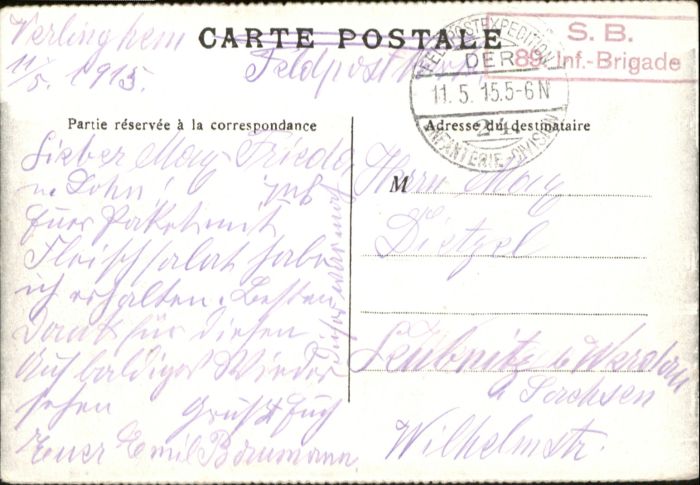 Verlinghem
11/5. 1915.
CARTE POSTALE
Feldpost
S. B.
89. Inf.-Brigade
FELDPOSTEXPEDITION
DER
11. 5. 15.5-6 N
24.
INFANTERIE-DIVISION
Partie réservée à la correspondance
Lieber Max, Frieda
u. Sohn!
Euer Paket mit
Fleischsalat habe
ich erhalten. Besten
Dank für diesen
Auf baldiges Wieder
sehen Grüßt Euch
Euer Emil Baumann.
Adresse du destinataire
M
Herrn Max
Dietzel
Leubnitz b Werdau
i. Sachsen
Wilhelmstr.